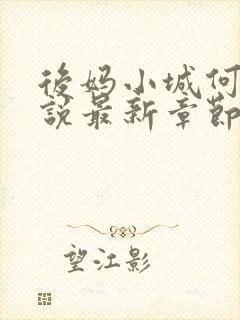 後妈小城何
說最新章節
望江影